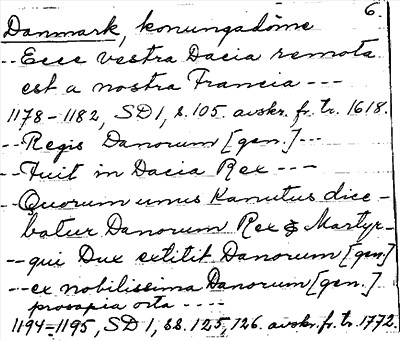 6.
Danmark, konungadöme
-- Ecce vestra Dacia remota
est a nostra Francia ---
1178-1182, SD 1, s. 105. avskr. fr. tr. 1618.
-- Regis Danorum [gen.] ---
-- Fuit in Dacia Rex ---
-- Quorum unus Kanutus dice-
batur Danorum Rex & Martyr --
-- qui Dux extitit Danorum [gen.]
-- ex nobilissima Danorum [gen.]
prosapia orta ----
1194-1195, SD 1, ss. 125, 126. avskr. fr. tr. 1772.